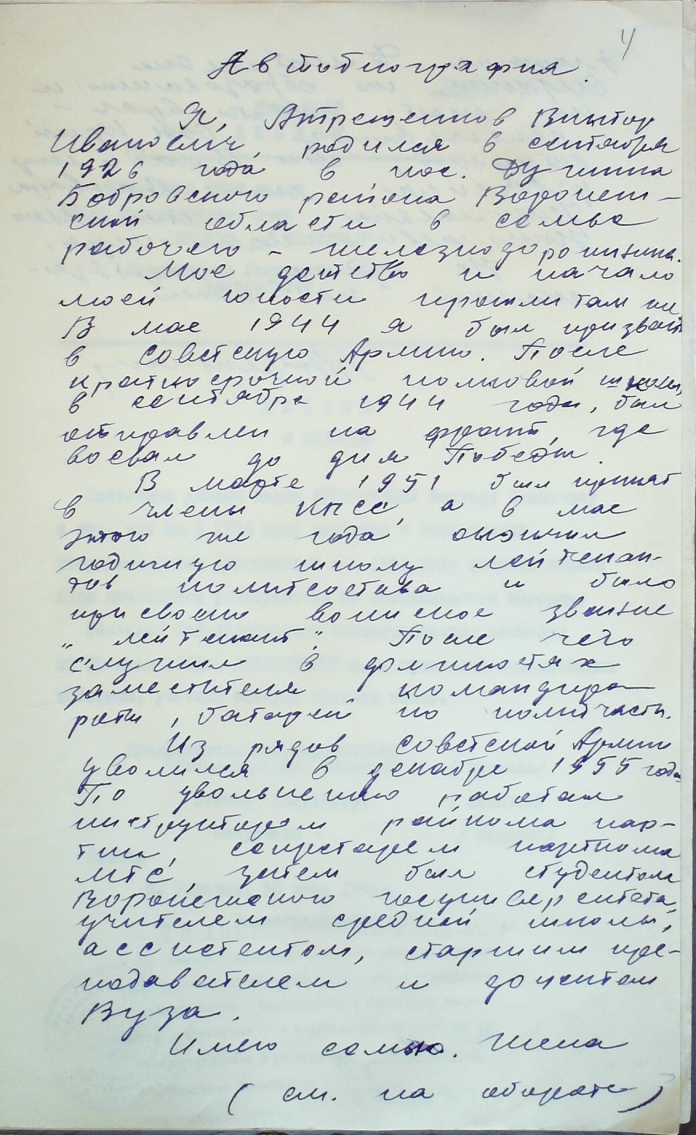 4
Автобиография.
Я, Антрещенков Виктор
Иванович, родился в сентябре
1926 года в пос.
Бобровского района Воронеж-
ской области в семье
рабочего - железнодорожника.
Мое детство и начало
моей юности прошли там же.
В мае 1944 я был призван
в советскую Армию. После
краткосрочной полковой школы,
в сентябре 1944 года, был
отправлен на фронт, где
воевал до дня Победы.
В марте 1951 был принят
в члены КПСС, а в мае
этого же года окончил
годичную школу лейтенан-
тов политсостава и было
присвоено воинское звание
"лейтенант". После чего
служил в должностях
заместителя командира
роты, батареи по политчасти.
Из рядов советской Армии
уволился в декабре 1955 года.
По увольнению работал
инструктором райкома пар-
тии, секретарем парткома
МТС затем был студентом
Воронежского госуниверситета,
учителем средней школы,
ассистентом, старшим пре-
подавателем и доцентом
Вуза.
Имею семью. Жена
(см. на обороте)